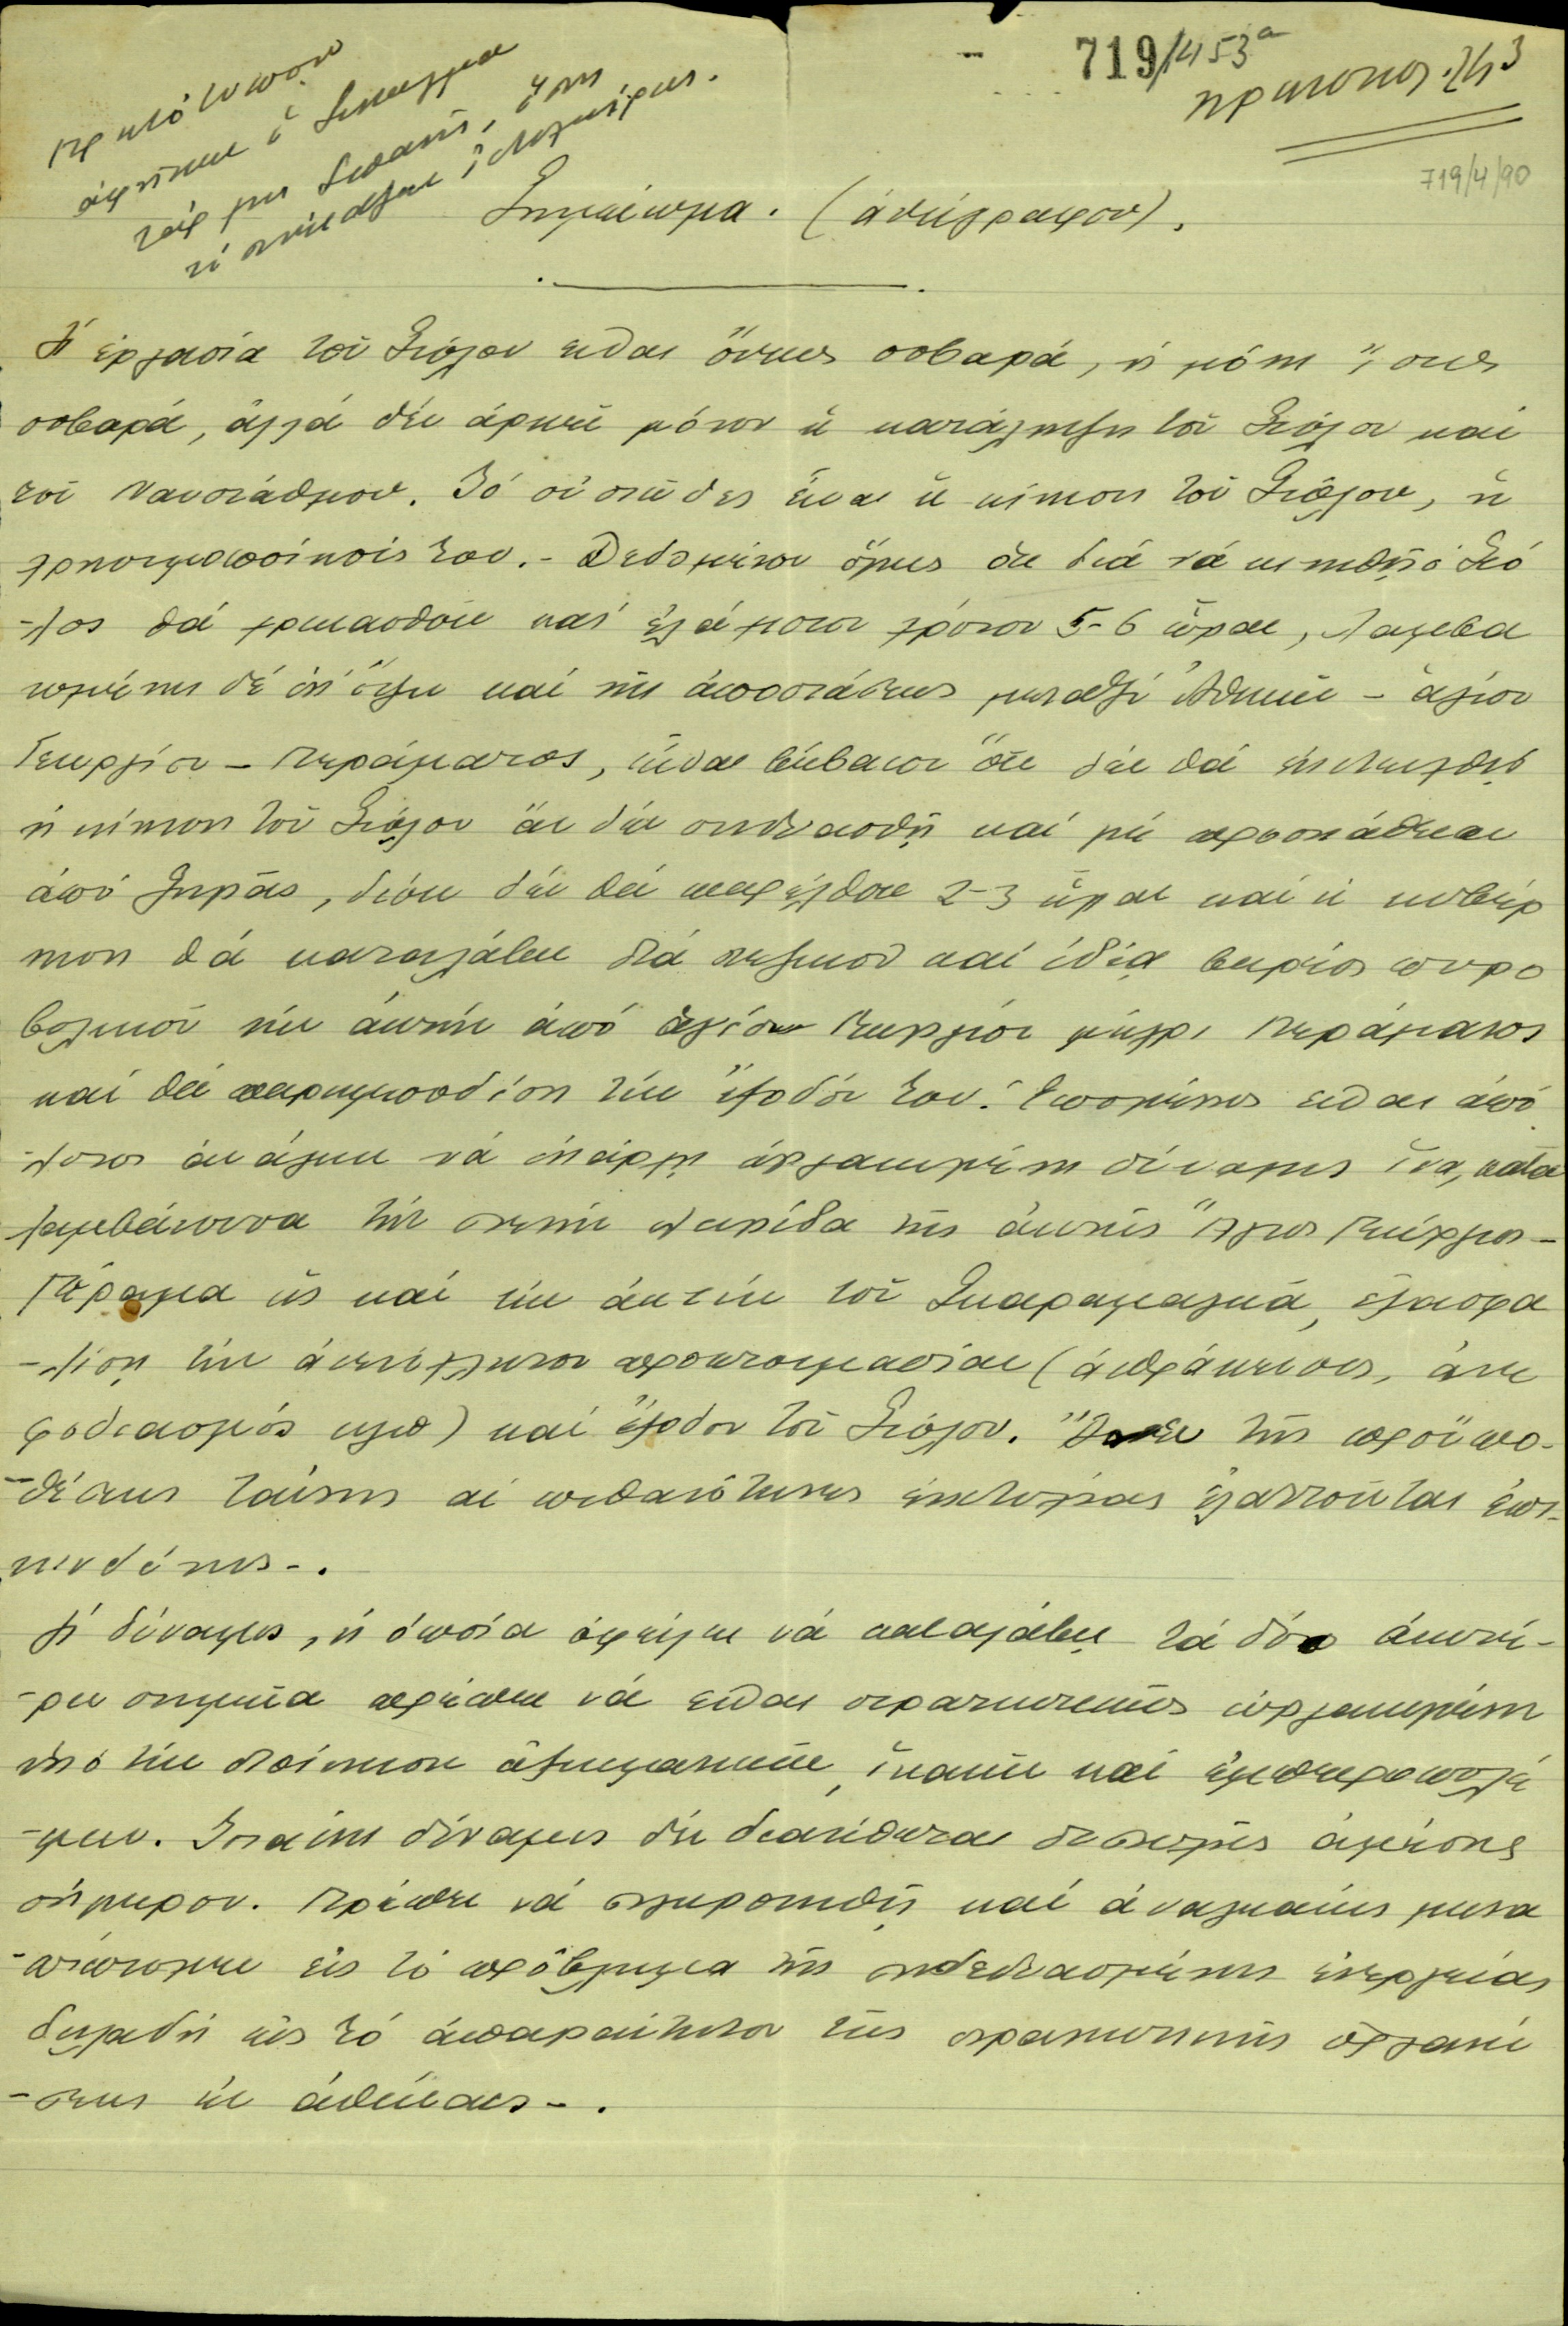 719/453α
719/4/90
Σημείωμα. (ἀντίγραφον).
Ἡ ἐργασία τοῦ Στόλου εἶναι ὄντως σοβαρά, ἡ μόνη ὄντως
σοβαρά, ἀλλά δέν ἀρκεῖ μόνον ἡ κατάληψη τοῦ Στόλου καί
τοῦ Ναυστάθμου. Τό οὐσιῶδες εἶναι ἡ κίνησις τοῦ Στόλου, ἡ
χρησιμοποίησίς του.- Δεδομένου ὅμως ὅτι διά νά κινηθῇ ὁ Στό
-λος θά χρειασθοῦν κατ' ἐλάχιστον χρόνον 5-6 ὧραι, λαμβα
νομένης δέ ὑπ' ὄψιν καί τῆς ἀποστάσεως μεταξύ Ἀθηνῶν - ἁγίου
Γεωργίου - Περάματος, εἶναι βέβαιον ὅτι δέν θά ἐπιτευχθῇ
ἡ κίνησις τοῦ Στόλου ἄν δέν συνδυασθῇ καί μέ προσπάθειαν
ἀπό ξηρᾶς, διότι δέν θά παρέλθουν 2-3 ὧραι καί ἡ κυβέρ
νησις θά καταλάβει διά πεζικοῦ καί ἰδίᾳ βαρέος πυρο
βολικοῦ τήν ἀκτήν ἀπό ἁγίου Γεωργίου μέχρι Περάματος
καί θά παρεμποδίση τήν ἔξοδόν του. Ἑπομένως εἶναι ἀπό
-λυτος ἀνάγκη νά ὑπάρχῃ ὠργανωμένη δύναμις ἵνα, κατα
λαμβάνουσα τήν στενήν λωρίδα τῆς ἀκτῆς Ἅγιος Γεώργιος -
Πέραμα ὡς καί τήν ἀκτήν τοῦ Σκαραμαγκᾶ, ἐξασφα
-λίσῃ τήν ἀνενόχλητον προετοιμασίαν (ἀνθράκευσις, ἀνε
φοδιασμός κλπ) καί ἔξοδον τοῦ Στόλου. Ἄνευ τῆς προϋπο-
-θέσεως ταύτης αἱ πιθανότητες ἐπιτυχίας ἐλαττοῦνται ἐπι-
κινδύνως-.
Ἡ δύναμις, ἡ ὁποία ὀφείλει νά καταλάβῃ τά δύο ἀνωτέ-
-ρω σημεῖα πρέπει νά εἶναι στρατιωτικῶς ὠργανωμένη
ὑπό τήν διοίκησιν ἀξιωματικῶν, ἱκανῶν καί ἐμπειροπολέ
-μων. Τοιαύτη δύναμις δέν διατίθεται δυστυχῶς ἀμέσως
σήμερον. Πρέπει νά συγκροτηθῇ καί ἀναγκαίως μετα
-πίπτομεν εἰς τό πρόβλημα τῆς συνδεδυασμένης ἐνεργείας
δηλαδή εἰς τό ἀπαραίτητον τῆς στρατιωτικῆς ὀργανώ
-σεως ἐν Ἀθήναις-.